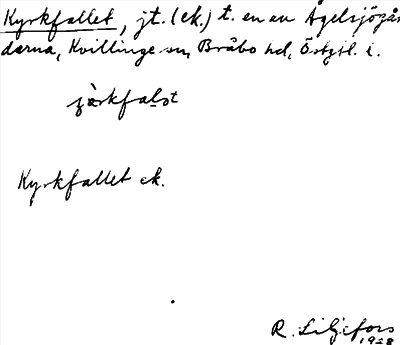 Kyrkfallet, jt. (ek.) t. en av Ågelsjögår
darna, Kvillinge sn, Bråbo hd, Östgtl. i.
Kyrkfallet ek.
R. Liljefors
1928